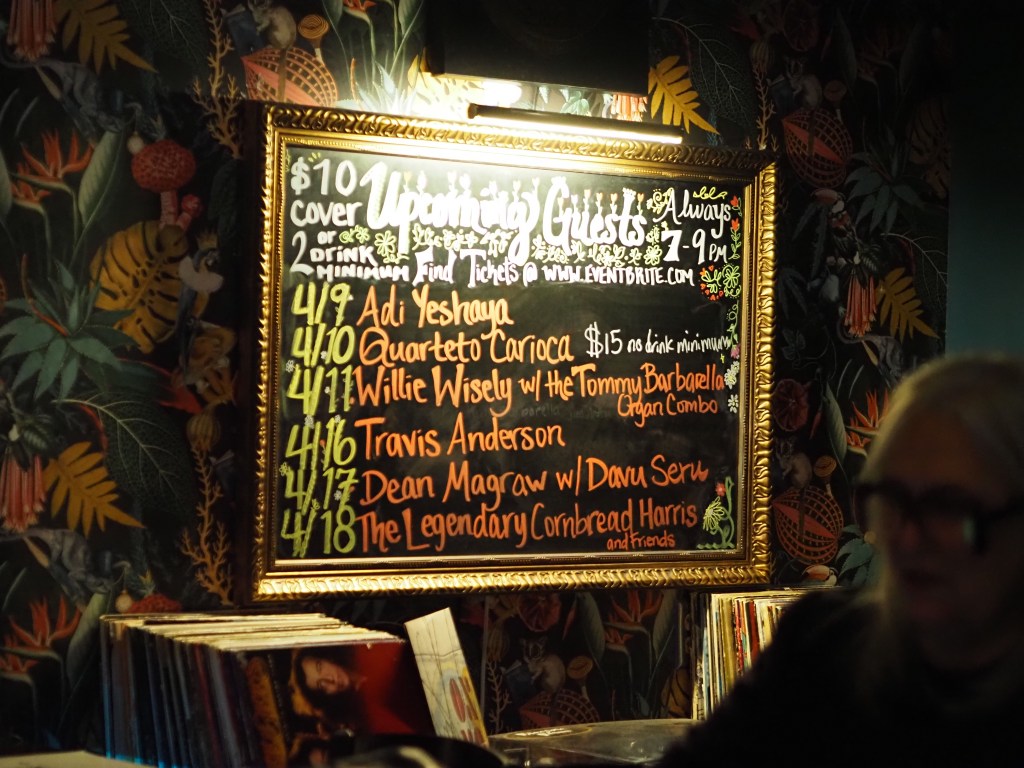 $10 cover or 2 drink minimum
Upcoming Guests
Always 7-9 PM
Find Tickets @ www.eventbrite.com
4/9 Adi Yeshaya
4/10 Quarteto Carioca $15 no drink minimum
4/11 Willie Wisely w/ the Tommy Barbarella
Organ Combo
4/16 Travis Anderson
4/17 Dean Magraw w/ Davu Seru
4/18 The Legendary Cornbread Harris
and Friends